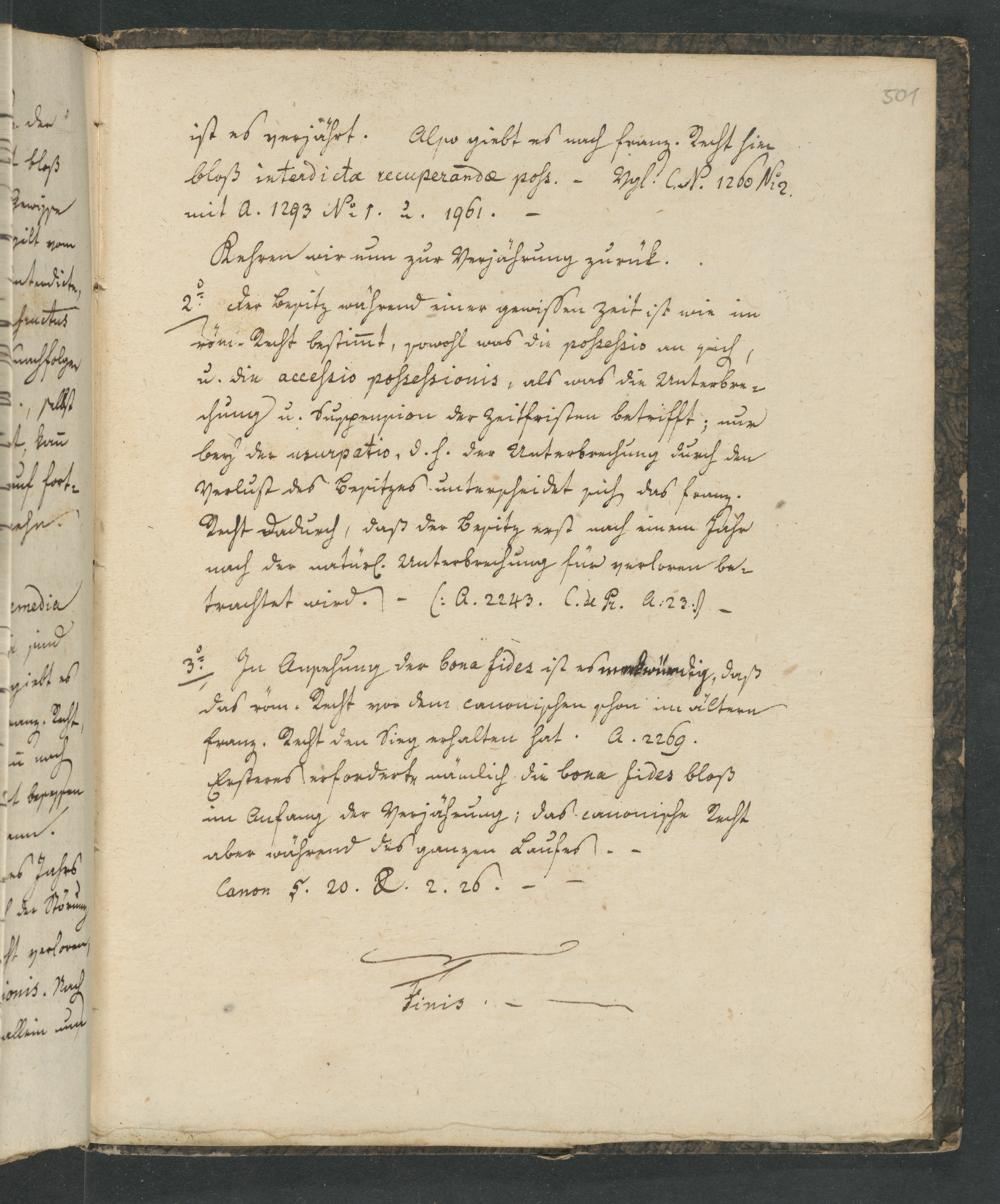 501
ist es verjährt. Also giebt es nach franz. Recht hier
bloß interdicta recuperandæ poss. – Vgl. C. N. 1260 No 2.
mit A. 1293 No 1. 2. 1961. –
Kehren wir nun zur Verjährung zurük.
2o Der Besitz während einer gewissen Zeit ist wie im
röm. Recht bestim̅t, sowohl was die possessio an sich,
u. die accessio possessionis, als was die Unterbre-
chung u. Suspension der Zeitfristen betrifft; nur
bey der usurpatio, d. h. der Unterbrechung durch den
Verlust des Besitzes unterscheidet sich das franz.
Recht dadurch, daß der Besitz erst nach einem Jahr
nach der natürl. Unterbrechung für verloren be-
trachtet wird. – (: A. 2243. C. de Pr. A. 23 :) –
3o In Ansehung der bona fides ist es merkwürdig, daß
das röm. Recht vor dem canonischen schon im ältern
franz. Recht den Sieg erhalten hat. A. 2269.
Ersteres erforderte nämlich die bona fides bloß
im Anfang der Verjährung; das canonische Recht
aber während des ganzen Laufes. – –
Canon 5. 20. X. 2. 26. – –
Finis. – —